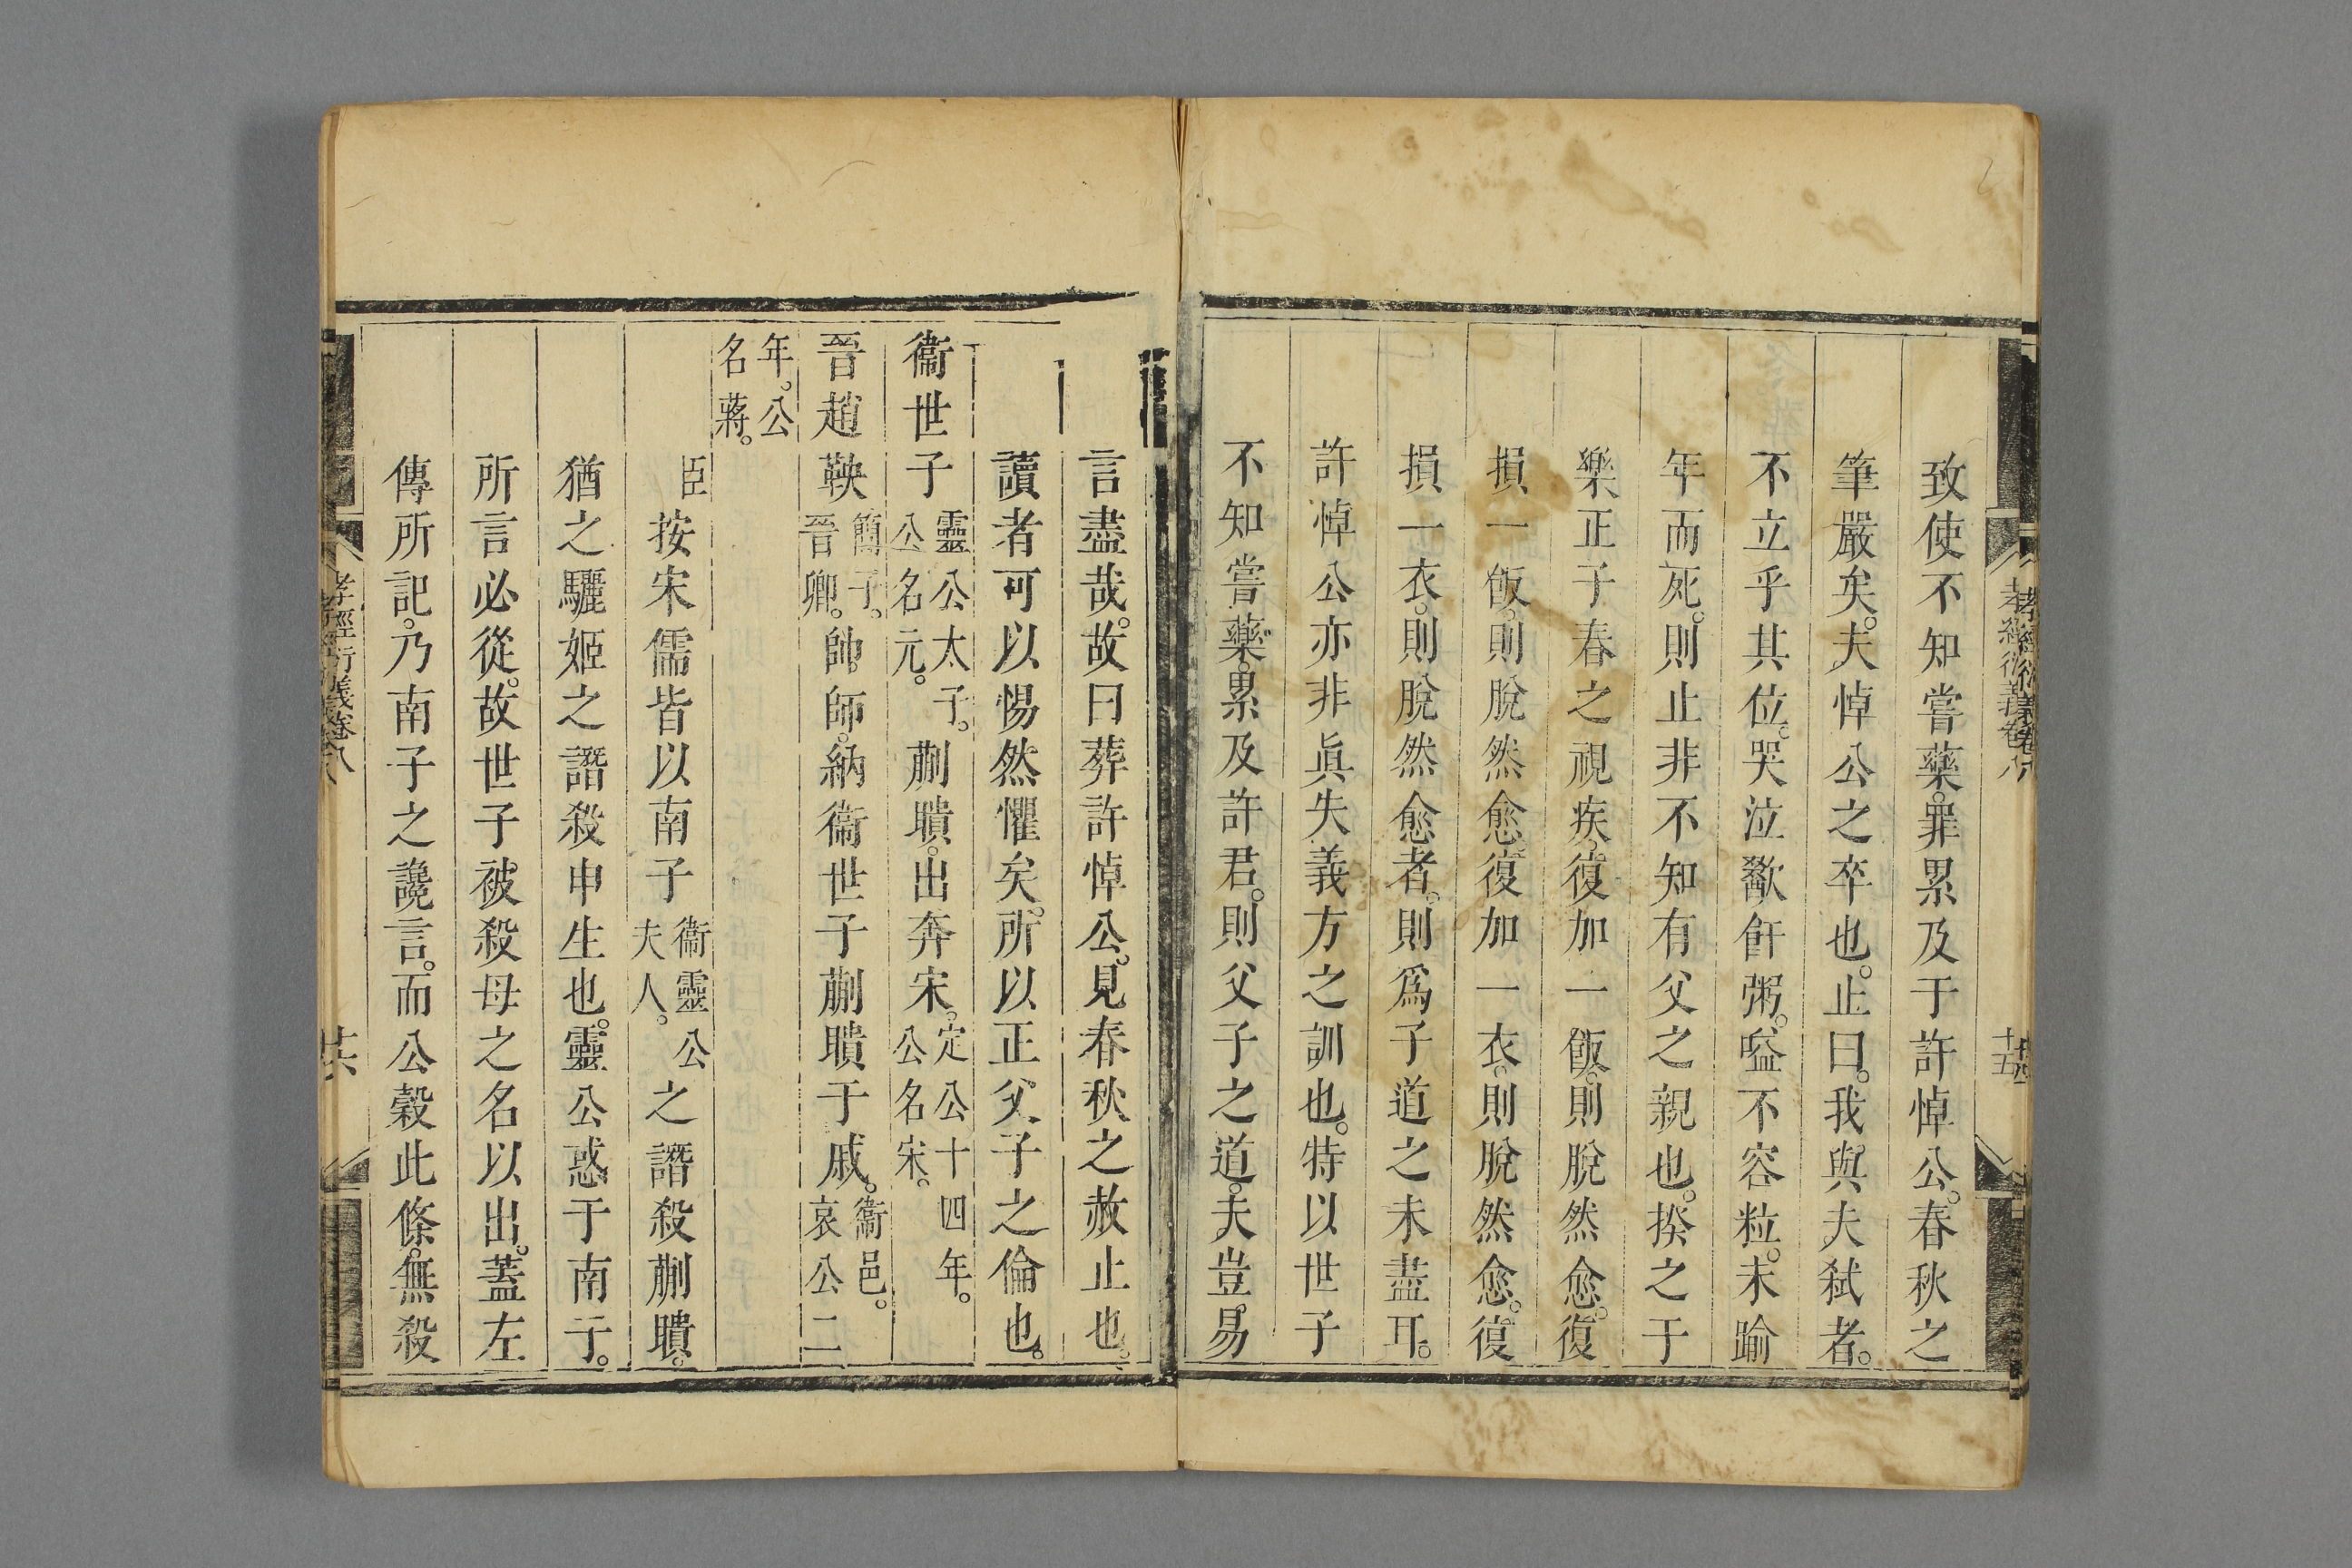 致使不知嘗藥。罪累及于許悼公。春秋之
筆嚴矣。夫悼公之卒也。止曰。我與夫弒者。
不立乎其位。哭泣歠飦粥。嗌不容粒。未踰
年而死。則止非不知有父之親也。揆之于
樂正子春之視疾。復加一飯。則脫然愈。復
損一飯。則脫然愈。復加一衣。則脫然愈。復
損一衣。則脫然愈者。則爲子道之未盡耳。
許悼公亦非眞失義方之訓也。特以世子
不知嘗藥。累及許君。則父子之道。夫豈易
言盡哉。故曰葬許悼公。見春秋之赦止也。
讀者可以惕然懼矣。所以正父子之倫也。
衞世子靈公太子。公名元。蒯聵。出奔宋。定公十四年。公名宋。
晉趙鞅簡子。晉卿。帥師。納衞世子蒯聵于戚。衞邑。哀公二
年。公名蔣。
臣按宋儒皆以南子衞靈公夫人。之譖殺蒯聵。
猶之驪姬之譖殺申生也。靈公惑于南子。
所言必從。故世子被殺母之名以出。蓋左
傳所記。乃南子之讒言。而公穀此條。無殺
孝經衍義卷八
十五
孝經衍義卷八